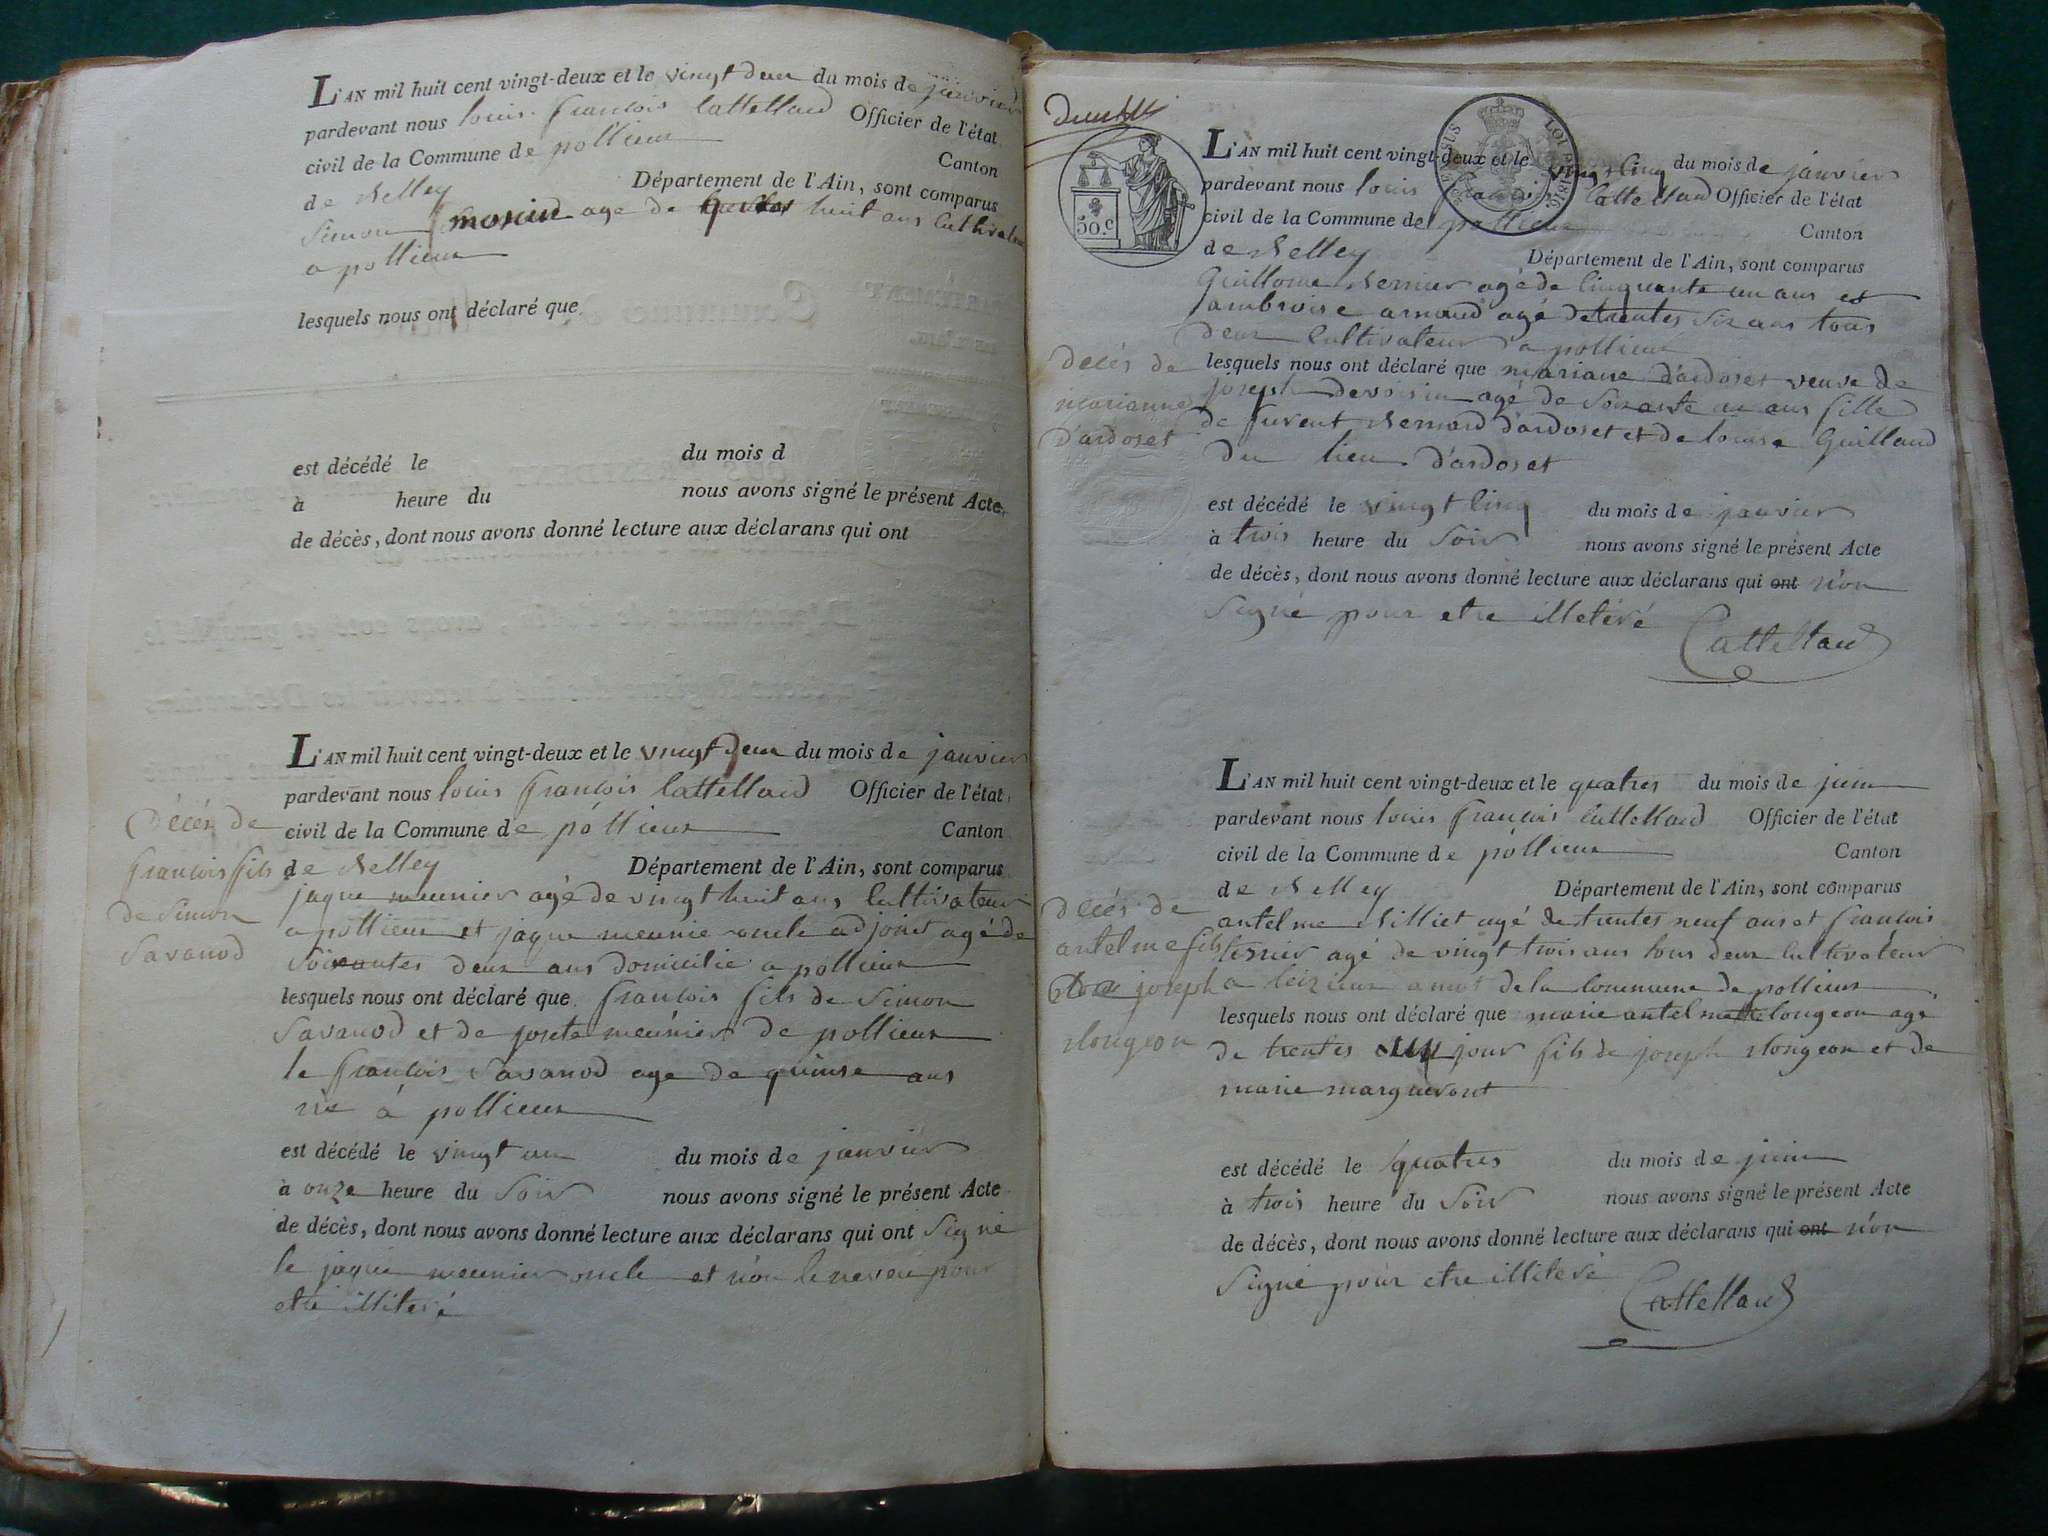 L'AN mil huit cent vingt-deux et le vingt deux du mois de janvier
pardevant nous louis françois Cattelland Officier de l'état
civil de la Commune de pollieux
Canton
de Belley Département de l'Ain, sont comparus
Simon age de huit ans Cultivateur
a pollieux
lesquels nous ont déclaré que
est décédé le du mois d
à heure du nous avons signé le présent Acte
de décès, dont nous avons donné lecture aux déclarans qui ont
L'AN mil huit cent vingt-deux et le vingt deux du mois de janvier
pardevant nous louis françois Cattelland Officier de l'état
civil de la Commune de pollieux Canton
de Belley Département de l'Ain, sont comparus
Décés de
françois fils
de Simon
Savanod
jaque meunier agé de vingt huit ans Cultivateur
a pollieux et jaque meunie oncle adjoint agé de
Soixantes deux ans domicilié a pollieux
lesquels nous ont déclaré que françois fils de Simon
Savanod et de josete meunier de pollieux
le françois Savanod age de quinse ans
né á pollieux
est décédé le vingt un du mois de janvier
à onze heure du Soir nous avons signé le présent Acte
de décès, dont nous avons donné lecture aux déclarans qui ont Signé
le jaque meunier oncle et non le neveu pour
etre illiteré
50.c
LOI DE 1816
L'AN mil huit cent vingt-deux et le vingt Cinq du mois de janvier
pardevant nous louis françois Cattelland Officier de l'état
civil de la Commune de pollieux Canton
de Belley Département de l'Ain, sont comparus
Guillome Bernier agé de Cinquante un ans et
ambroise arnaud agé de trentes Six ans tous
deux Cultivateur a pollieux
décés de
marianne
d'ardoset
lesquels nous ont déclaré que mariane d'ardoset veuve de
joseph devoisin agé de Soixante un ans fille
de fuvent Bernard d'ardoset et de louise Guilland
du lieu d'ardoset
est décédé le vingt Cinq du mois de janvier
à trois heure du Soir nous avons signé le présent Acte
de décès, dont nous avons donné lecture aux déclarans qui ont non
Signé pour etre illeteré
Cattelland
L'AN mil huit cent vingt-deux et le quatres du mois de juin
pardevant nous louis françois Cattelland Officier de l'état
civil de la Commune de pollieux Canton
de Belley Département de l'Ain, sont comparus
décés de
antelme fils
de joseph
Blongeon
antelme Billiet agé de trentes neuf ans et françois
agé de vingt trois ans tous deux Cultivateur
a amot de la Commune de pollieux
lesquels nous ont déclaré que marie antelme Blongeon age
de trentes jour fils de joseph Blongeon et de
marie margueront
est décédé le quatres du mois de juin
à trois heure du Soir nous avons signé le présent Acte
de décès, dont nous avons donné lecture aux déclarans qui ont non
Signé pour etre illiteré
Cattelland